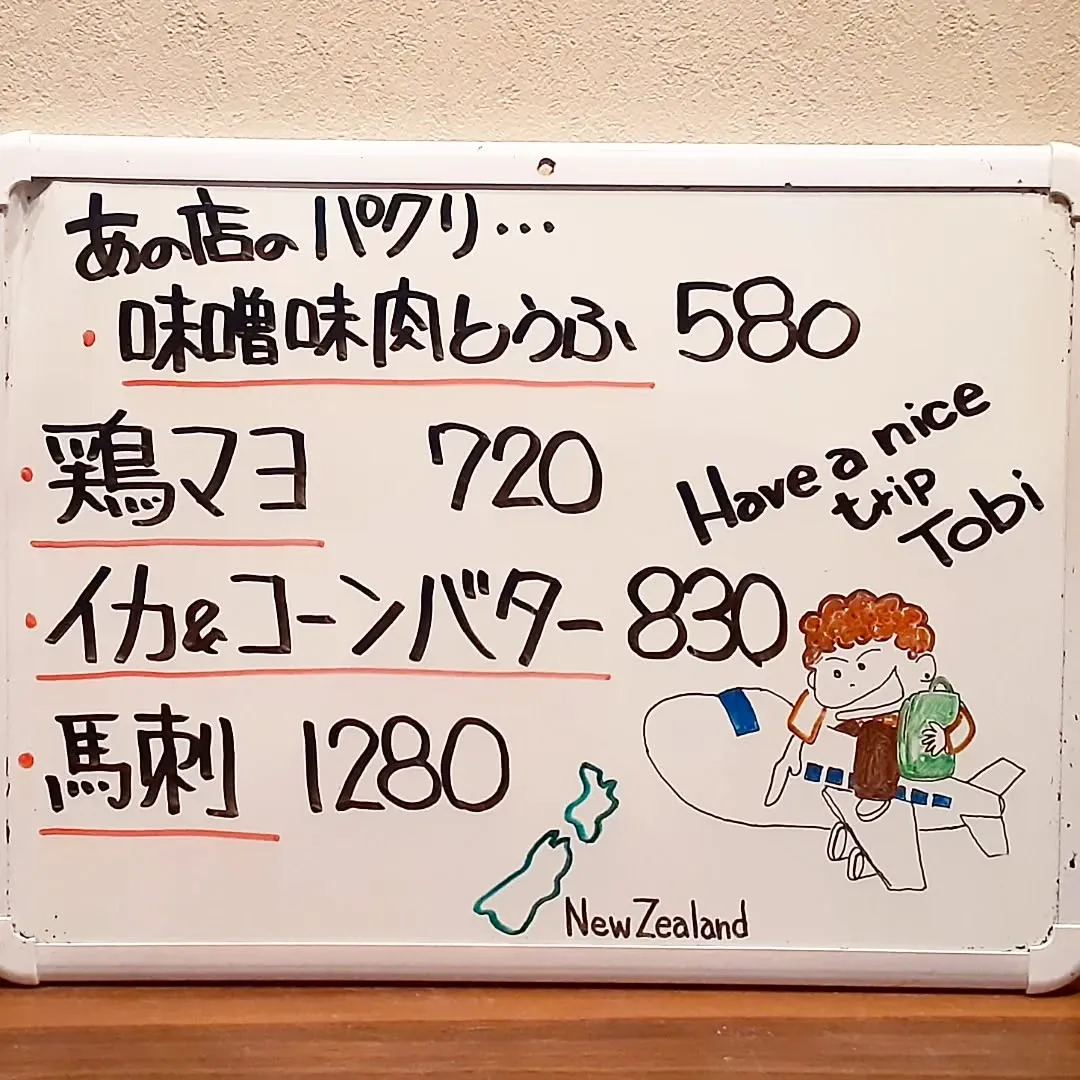 あの店のパクリ…
・味噌味肉とうふ 580
・鶏マヨ 720
・イカ&コーンバター 830
・馬刺 1280
Have a nice
trip
Tobi
New Zealand